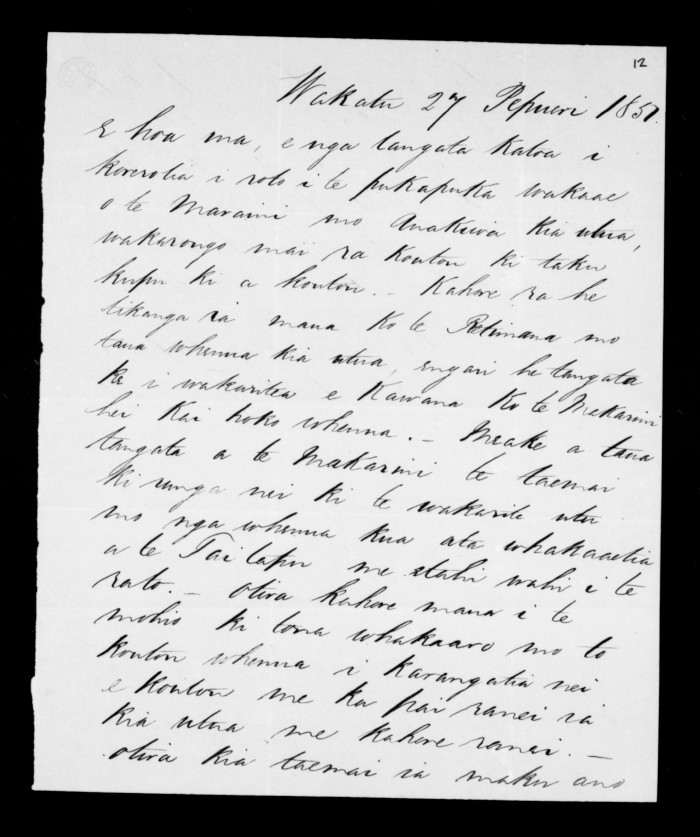 12
Wakatu 27 Pepueri 1851.
E hoa ma, e nga tangata katoa i
korerotia i roto i te pukapuka wakaae
o te Maraini mo Anakiwa kia utua,
wakarongo mai ra koutou ki taku
kupu ki a koutou. - Kahore ra he
tikanga ia mana ko te Retimana mo
taua whenua kia utua, engari he tangata
ke i wakaritea e Kawana Ko te Makarini
hei Kai hoko whenua. - Meake a taua
tangata a te Makarini te taemai
ki runga nei ki te wakarite utu
mo nga whenua kua ata whakaaetia
a te Tai tapu me etahi wahi i te
rato. - Otira kahore maua i te
mohio ki tona whakaaro mo to
koutou whenua i karangatia nei
e koutou me ka pai ranei ia
kia utua me kahore ranei. -
otira kia taemai ia maku ano